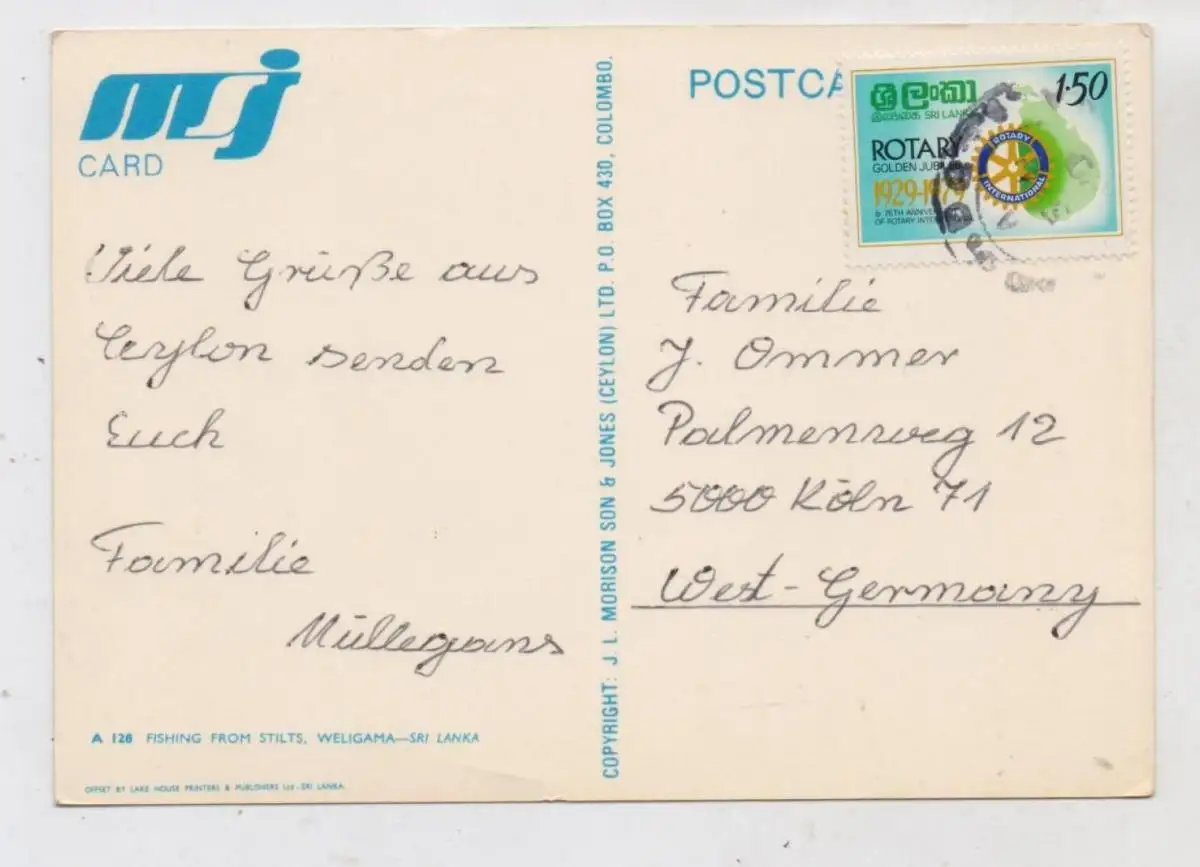 msj
CARD
Viele Grüße aus
Ceylon senden
Euch
Familie
Müllegans
A 128 FISHING FROM STILTS, WELIGAMA—SRI LANKA
OFFSET BY LAKE HOUSE PRINTERS & PUBLISHERS Ltd - SRI LANKA.
COPYRIGHT: J. L. MORISON SON & JONES (CEYLON) LTD. P.O. BOX 430, COLOMBO.
POSTCA
ශ්‍රී ලංකා 1·50
இலங்கை SRI LANKA
ROTARY
GOLDEN JUBILEE
1929-1979
& 75TH ANNIVERSARY
OF ROTARY INTERNATIONAL
ROTARY
INTERNATIONAL
Familie
J. Ommer
Palmenweg 12
5000 Köln 71
West-Germany